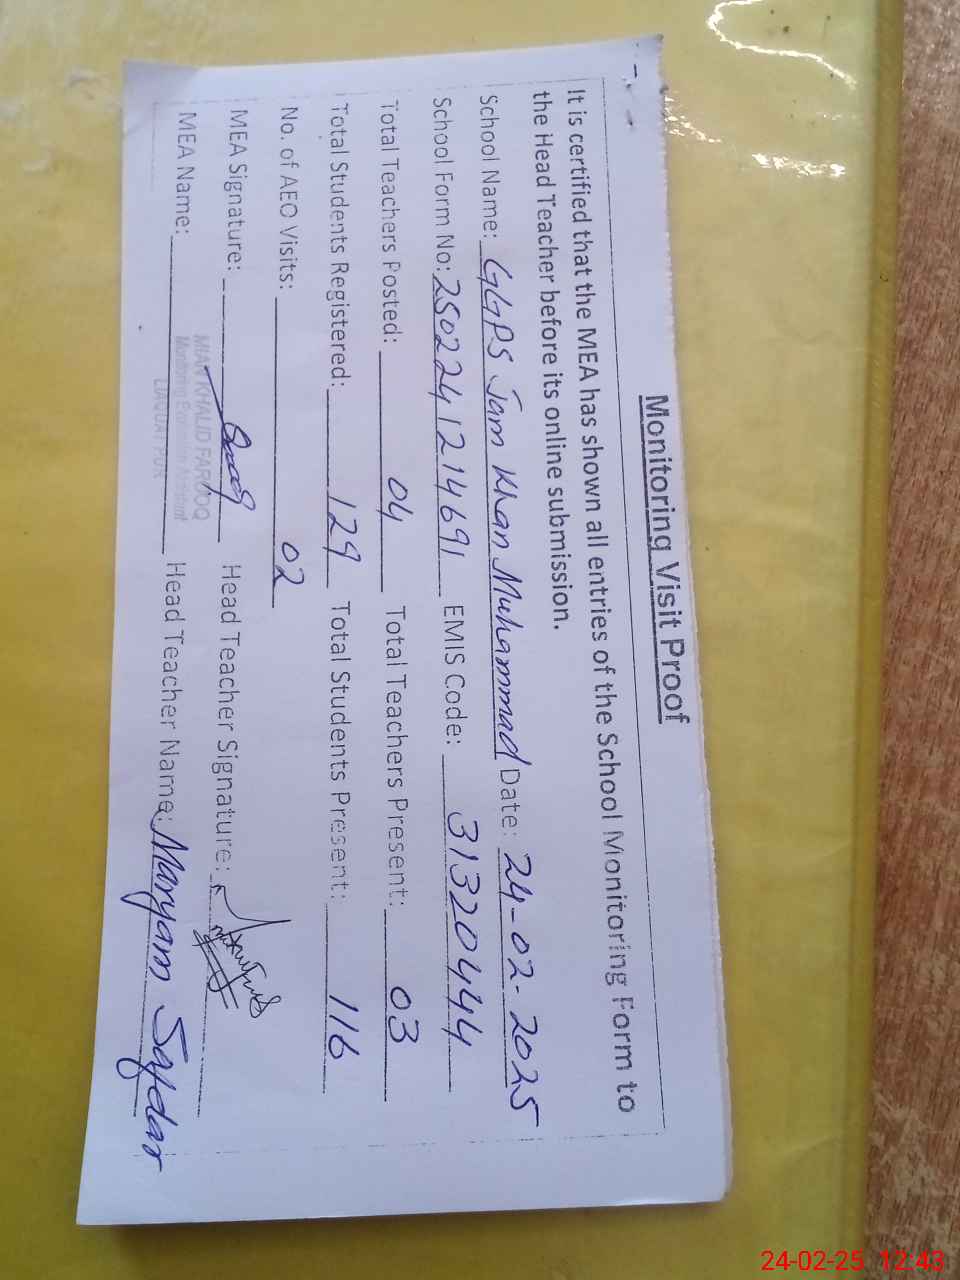 Monitoring Visit Proof
It is certified that the MEA has shown all entries of the School Monitoring Form to
the Head Teacher before its online submission.
School Name: GGPS Jam Khan Muhammad Date: 24-02-2025
School Form No: 2502241214691 EMIS Code: 31320444
Total Teachers Posted: 04 Total Teachers Present: 03
Total Students Registered: 129 Total Students Present: 116
No. of AEO Visits: 02
MEA Signature: Head Teacher Signature:
MIAN KHALID FAROOQ
Monitoring Evaluation Assistant
LIAQUAT PUR
MEA Name: Head Teacher Name: Maryam Safdar
24-02-25 12:43